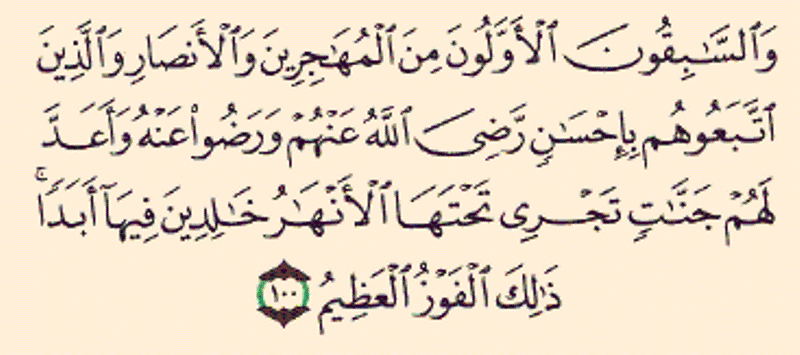 وَٱلسَّـٰبِقُونَ ٱلْأَوَّلُونَ مِنَ ٱلْمُهَـٰجِرِينَ وَٱلْأَنصَارِ وَٱلَّذِينَ
ٱتَّبَعُوهُم بِإِحْسَـٰنٍ رَّضِىَ ٱللَّهُ عَنْهُمْ وَرَضُوا۟ عَنْهُ وَأَعَدَّ
لَهُمْ جَنَّـٰتٍ تَجْرِى تَحْتَهَا ٱلْأَنْهَـٰرُ خَـٰلِدِينَ فِيهَآ أَبَدًا ۚ
ذَٰلِكَ ٱلْفَوْزُ ٱلْعَظِيمُ ١٠٠